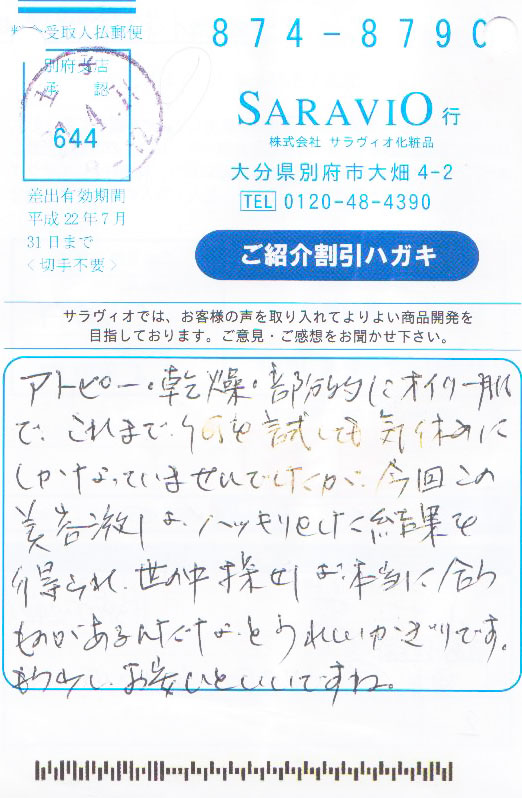 料金受取人払郵便
別府支店
承認
644
差出有効期間
平成22年7月
31日まで
<切手不要>
874-8790
SARAVIO 行
株式会社 サラヴィオ化粧品
大分県別府市大畑4-2
TEL 0120-48-4390
ご紹介割引ハガキ
サラヴィオでは、お客様の声を取り入れてよりよい商品開発を
目指しております。ご意見・ご感想をお聞かせ下さい。
アトピー・乾燥・部分的にオイリー肌
で、これまで、何を試しても気休めに
しかなっていませんでしたが、今回この
美容液は、ハッキリとした結果を
得られ、世の中探せば、本当に合う
ものがあるんだなぁとうれしいかぎりです。
もう少し、お安いといいですね。